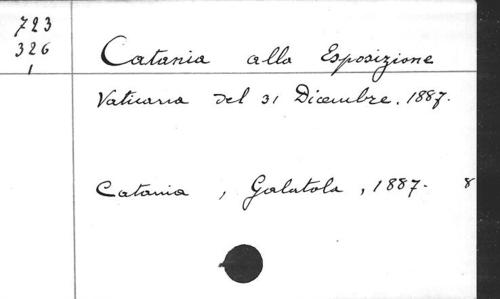 723
326
1
Catania alla Esposizione
Vaticana del 31 Dicembre. 1887.
Catania, Galatola, 1887. 8